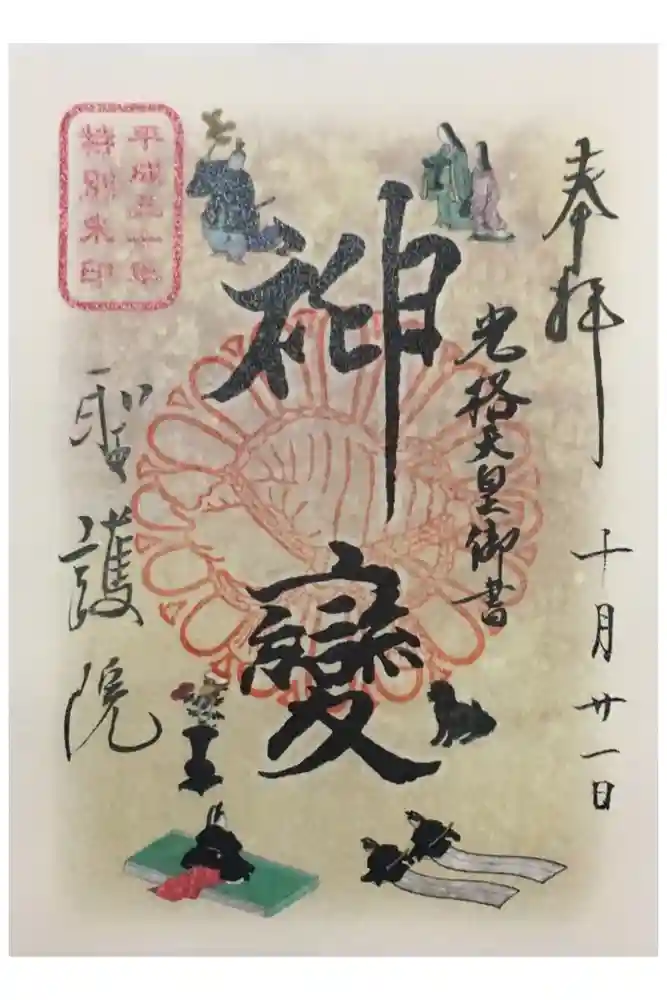 奉拝
十月廿一日
光格天皇御書
神變
平成三十年
特別朱印
聖護院